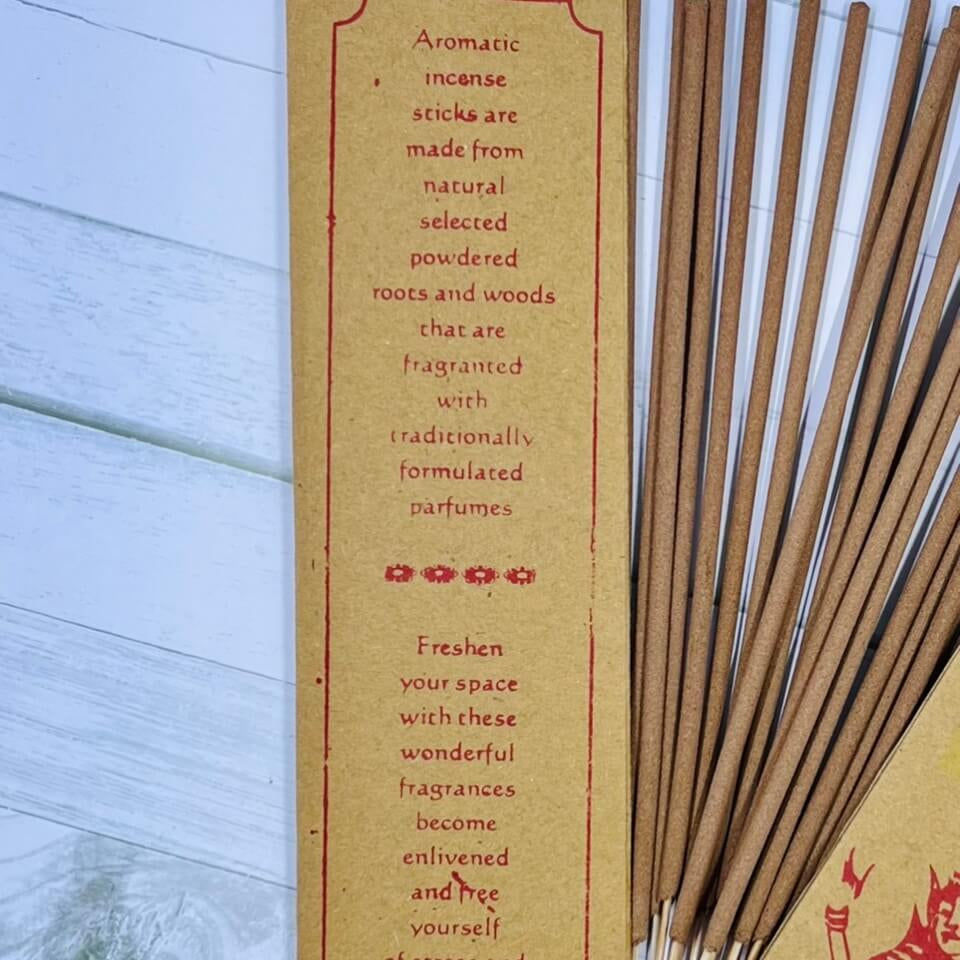 Aromatic
incense
sticks are
made from
natural
selected
powdered
roots and woods
that are
fragranted
with
traditionally
formulated
parfumes
Freshen
your space
with these
wonderful
fragrances
become
enlivened
and free
yourself